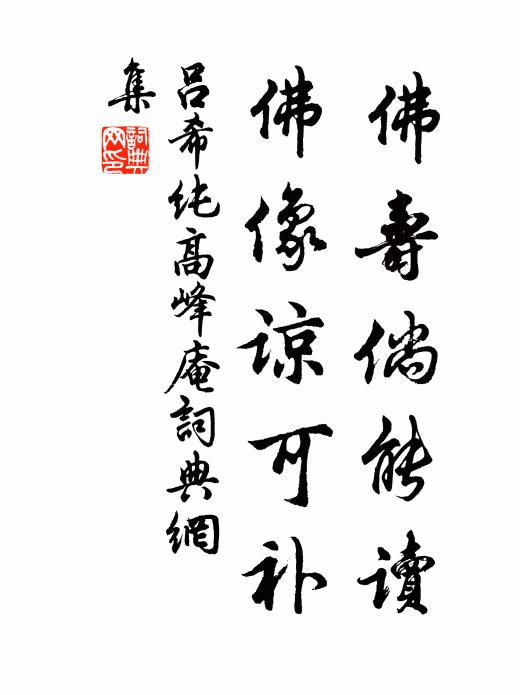 佛壽倘能讀
佛像諒可补
吕希纯高峰庵詞典網
集
詞典网印